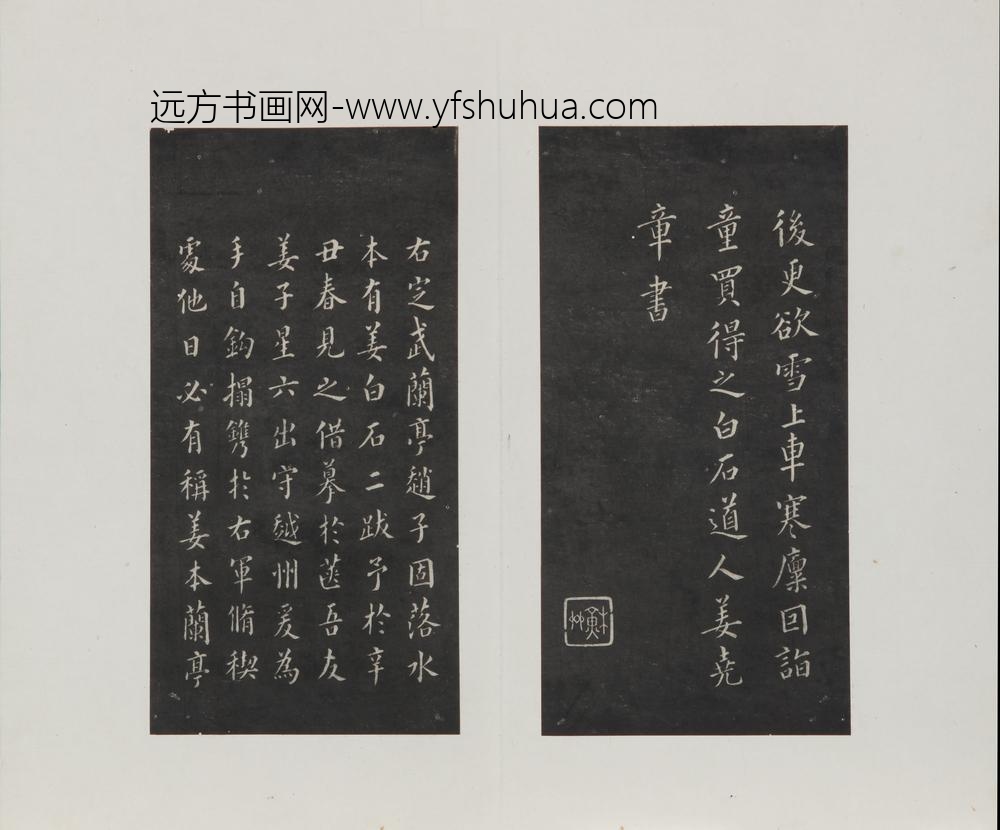 远方书画网-www.yfshuhua.com
後更欲雪上車寒廩回詣
童買得之白石道人姜堯
章書
右定武蘭亭趙子固落水
本有姜白石二跋予於辛
丑春見之借摹於篋吾友
姜子星六出守越州爰為
手自鈎搨鐫於右軍脩稧
處他日必有稱姜本蘭亭